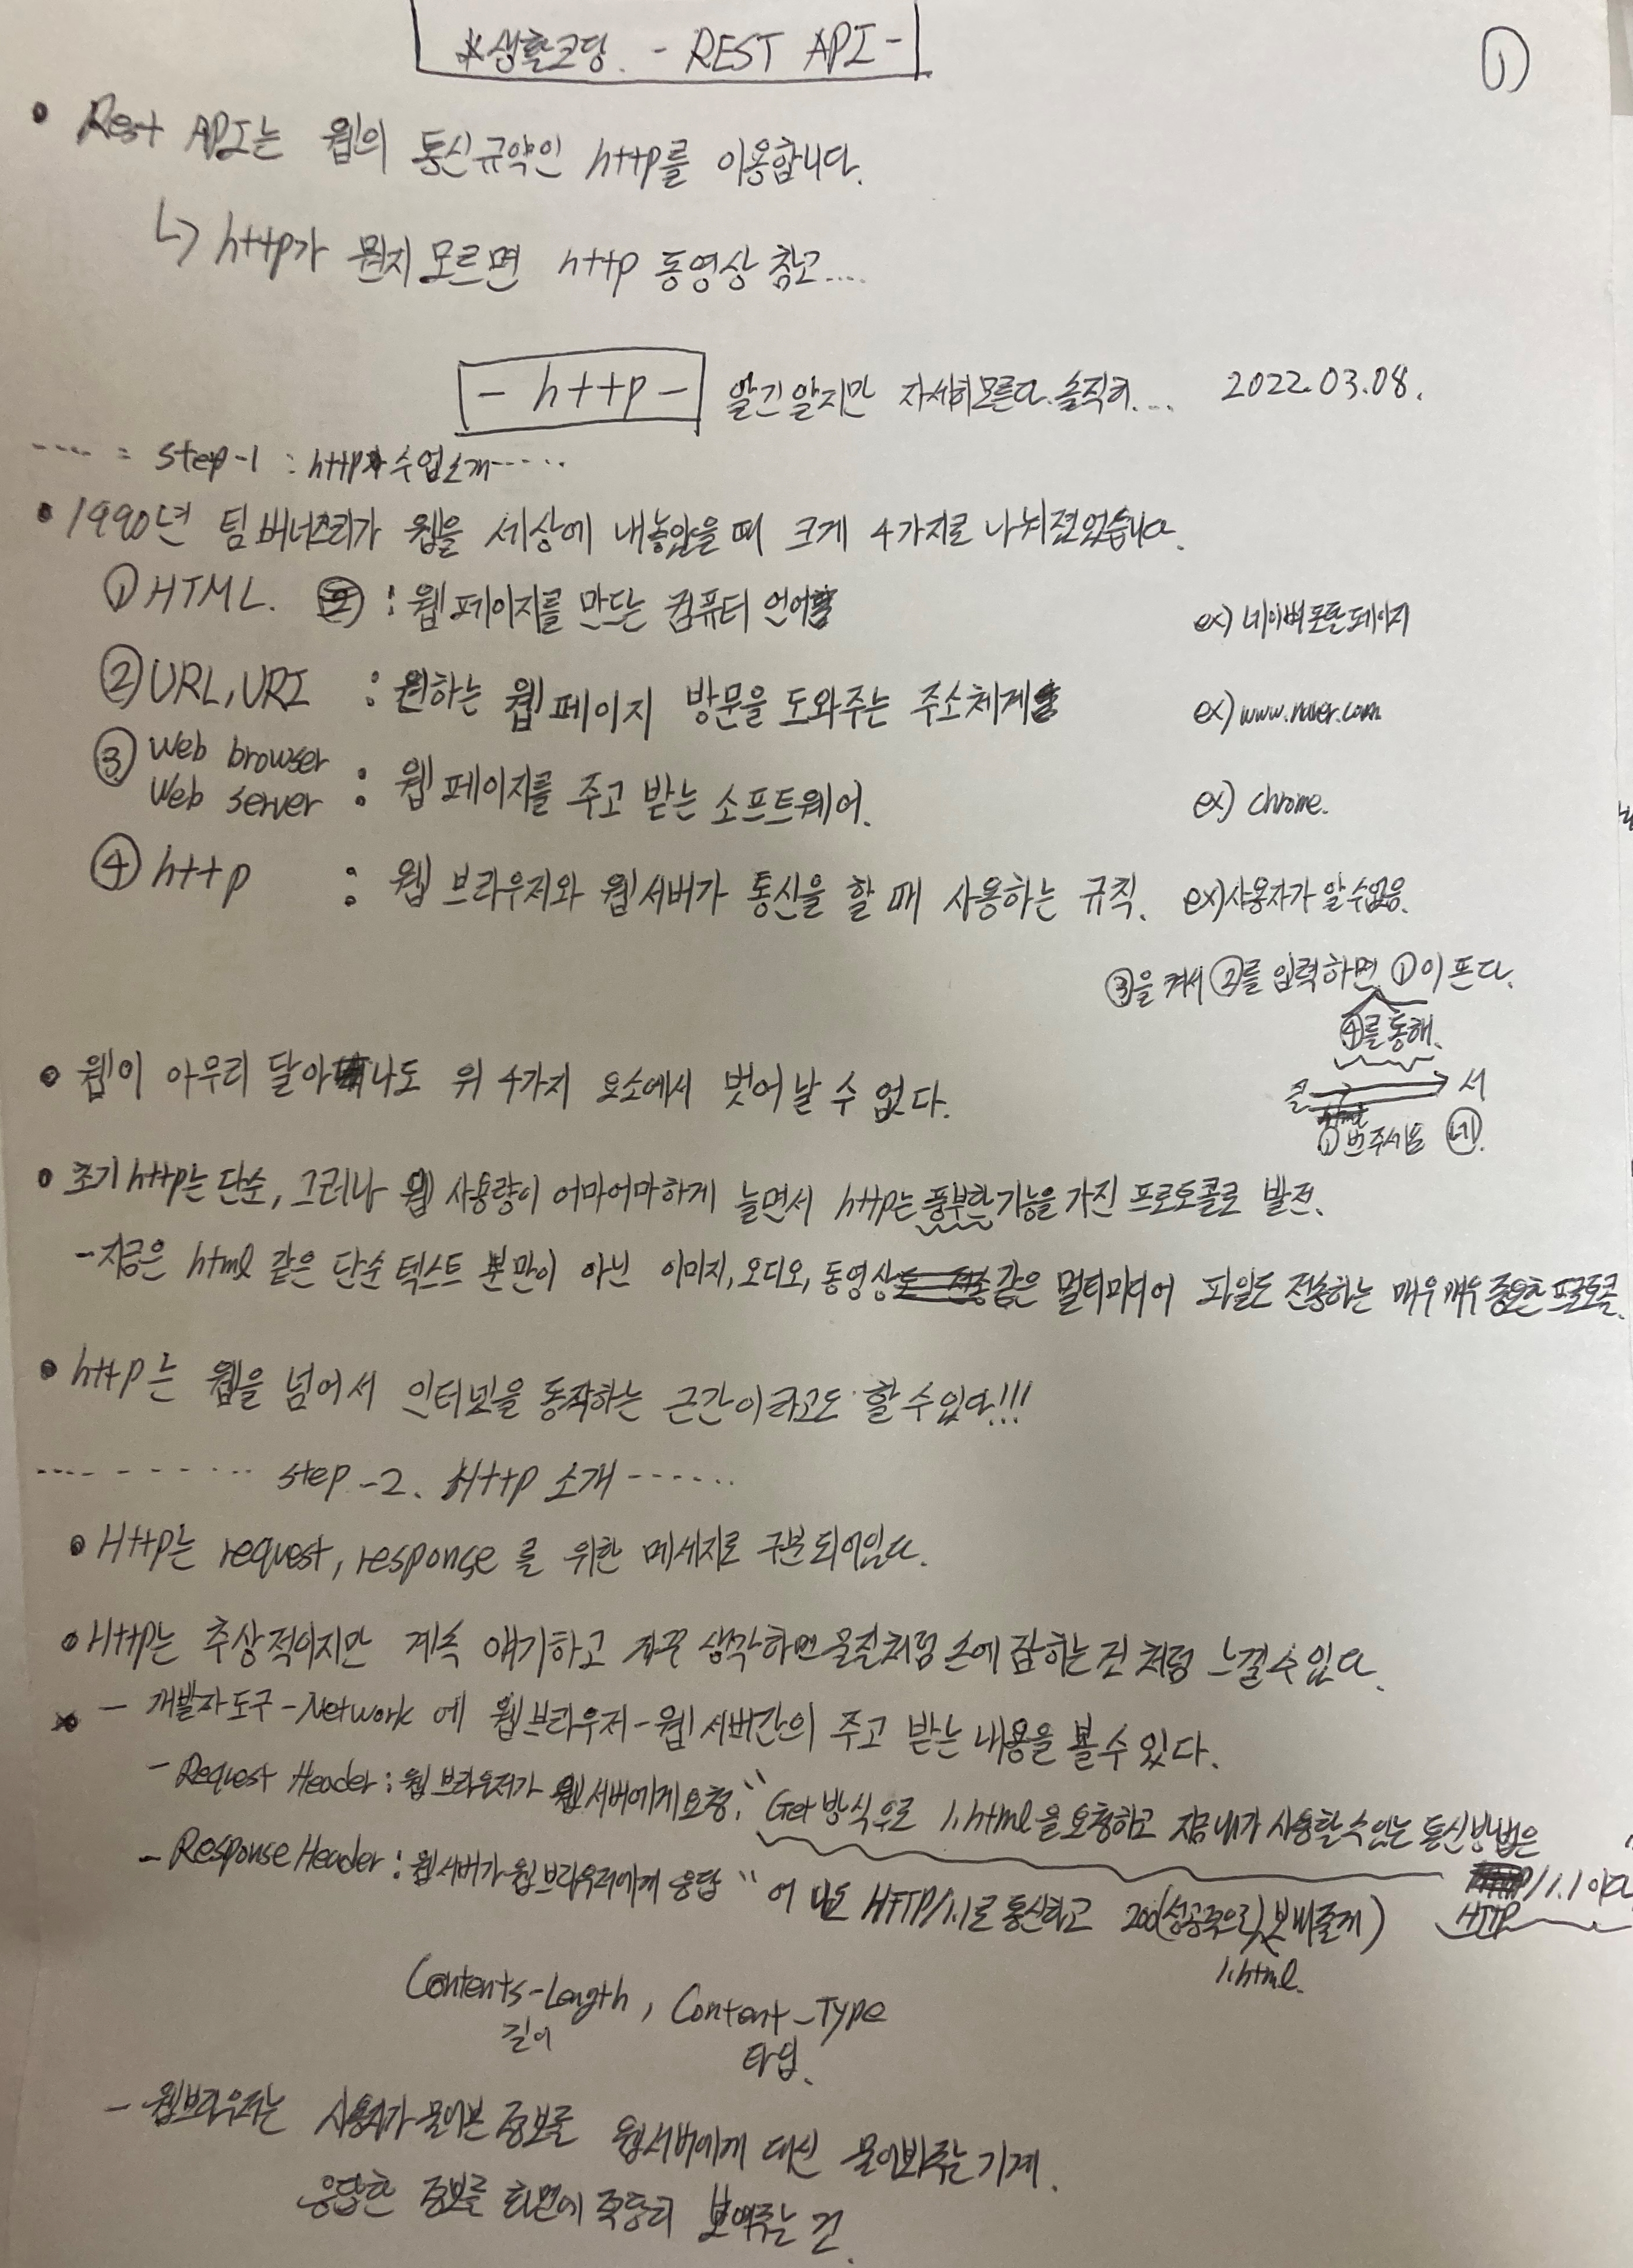 *생활코딩. - REST API -
①
• Rest API는 웹의 통신규약인 http를 이용합니다.
↳ http가 뭔지 모르면 http 동영상 참고....
- http - 알긴 알지만 자세히 모른다. 솔직히.... 2022.03.08.
---- : step-1 : http 수업소개 -----
• 1990년 팀버너즈리가 웹을 세상에 내놓았을 때 크게 4가지로 나눠졌었습니다.
① HTML. : 웹페이지를 만드는 컴퓨터 언어 ex) 네이버 모든 페이지
② URL, URI : 원하는 웹 페이지 방문을 도와주는 주소체계 ex) www.naver.com
③ Web browser
Web server : 웹 페이지를 주고 받는 소프트웨어. ex) chrome.
④ http : 웹 브라우저와 웹서버가 통신을 할 때 사용하는 규칙. ex) 사용자가 알 수 없음.
③을 켜서 ②를 입력하면 ①이 뜬다.
④를 통해.
• 웹이 아무리 달아나도 위 4가지 요소에서 벗어날 수 없다.
클 → 서
①번주세요 네.
• 초기 http는 단순, 그러나 웹 사용량이 어마어마하게 늘면서 http는 풍부한 기능을 가진 프로토콜로 발전.
- 지금은 html 같은 단순 텍스트 뿐만이 아닌 이미지, 오디오, 동영상 같은 멀티미디어 파일도 전송하는 매우매우 중요한 프로토콜.
• http는 웹을 넘어서 인터넷을 동작하는 근간이라고도 할 수 있다!!!
---------- step -2. Http 소개 ------
• Http는 request, response 를 위한 메세지로 구분되어있다.
• Http는 추상적이지만 계속 얘기하고 자꾸 생각하면 물질처럼 손에 잡히는 것 처럼 느낄 수 있다.
* - 개발자도구 - Network 에 웹브라우저 - 웹서버간의 주고 받는 내용을 볼 수 있다.
- Request Header : 웹 브라우저가 웹서버에게 요청. " Get방식으로 1.html을 요청하고 지금 내가 사용할 수 있는 통신방법은
HTTP/1.1 이다
- Response Header : 웹서버가 웹브라우저에게 응답 " 어 나도 HTTP/1.1로 통신하고 200(성공적으로) 보내줄게)
1.html.
Contents-Length, Content-Type
길이 타입.
- 웹브라우저는 사용자가 물어본 정보를 웹서버에게 대신 물어봐주는 기계.
응답한 정보를 화면에 적당히 보여주는 것.